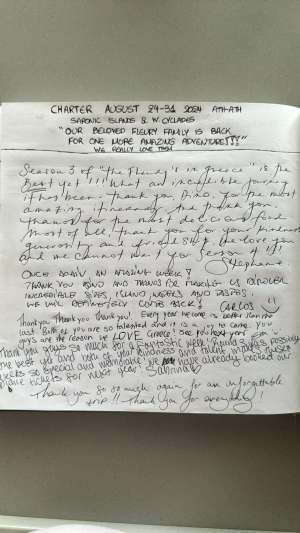 CHARTER AUGUST 24-31 2024 ATH-ATH
SARONIC ISLANDS & W. CYCLADES
"OUR BELOVED FLEURY FAMILY IS BACK
FOR ONE MORE AMAZING ADVENTURE!!!"
WE REALLY LOVE THEM
Season 3 of "the Fleury's in Greece" is the
Best yet!!! What an incredible journey
it has been. Thank you Dino for the most
amazing itinerary
thanks for the most delicious food
Most of all, thank you for your kindness
generosity and friendship. We love you
and we cannot wait for Season 4!!!
Stephanie
ONCE AGAIN AN AMAZING WEEK!
THANK YOU DINO AND
INCREDIBLE ISLAND WATERS AND
WE WILL DEFINITELY COME BACK! CARLOS
Thank you Thank you thank you! Every year we come is better than the
last. Both of you are so talented and it is a joy to
guys are the reason we LOVE Greece! See you next year
Thank you guys so much for a fantastic week!
the best yet and both of your kindness and talent makes these
weeks so special and memorable we have already booked our
plane tickets for next year! Sabrina
Thank you so so much again for an unforgettable
trip!! Thank you for everything!